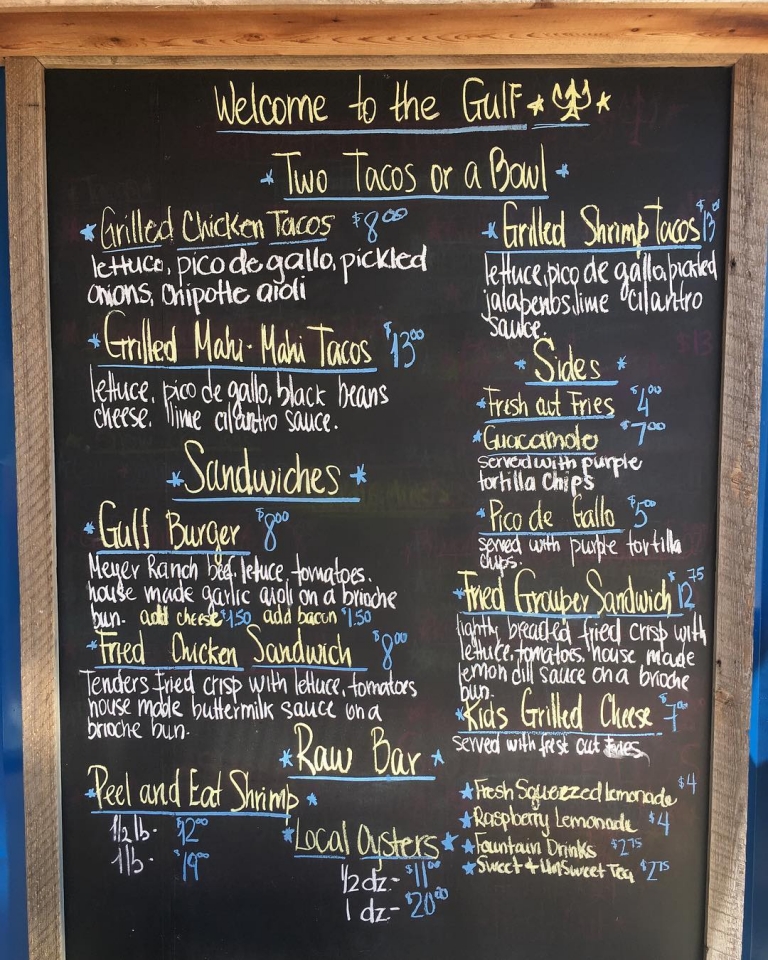 Welcome to the Gulf
Two Tacos or a Bowl
Grilled Chicken Tacos $8.00
lettuce, pico de gallo, pickled
onions, chipotle aioli
Grilled Mahi-Mahi Tacos $13.00
lettuce, pico de gallo, black beans
cheese, lime cilantro sauce.
Grilled Shrimp Tacos $13.00
lettuce, pico de gallo, pickled
jalapenos, lime cilantro
sauce.
Sandwiches
Gulf Burger $8.00
Meyer Ranch beef, lettuce, tomatoes,
house made garlic aioli on a brioche
bun. add cheese $1.50 add bacon $1.50
Fried Chicken Sandwich $8.00
Tenders fried crisp with lettuce, tomatoes
house made buttermilk sauce on a
brioche bun.
Sides
Fresh cut Fries $4.00
Guacamole $7.00
served with purple
tortilla chips
Pico de Gallo $5.00
served with purple tortilla
chips.
Fried Grouper Sandwich $12.75
lightly breaded fried crisp with
lettuce, tomatoes, house made
lemon dill sauce on a brioche
bun.
Kids Grilled Cheese $7.00
served with fresh cut fries
Raw Bar
Peel and Eat Shrimp
1/2 lb. $12.00
1 lb. $19.00
Local Oysters
1/2 dz- $11.00
1 dz- $20.00
Fresh Squezzed lemonade $4
Raspberry Lemonade $4
Fountain Drinks $2.75
Sweet + UnSweet Tea $2.75